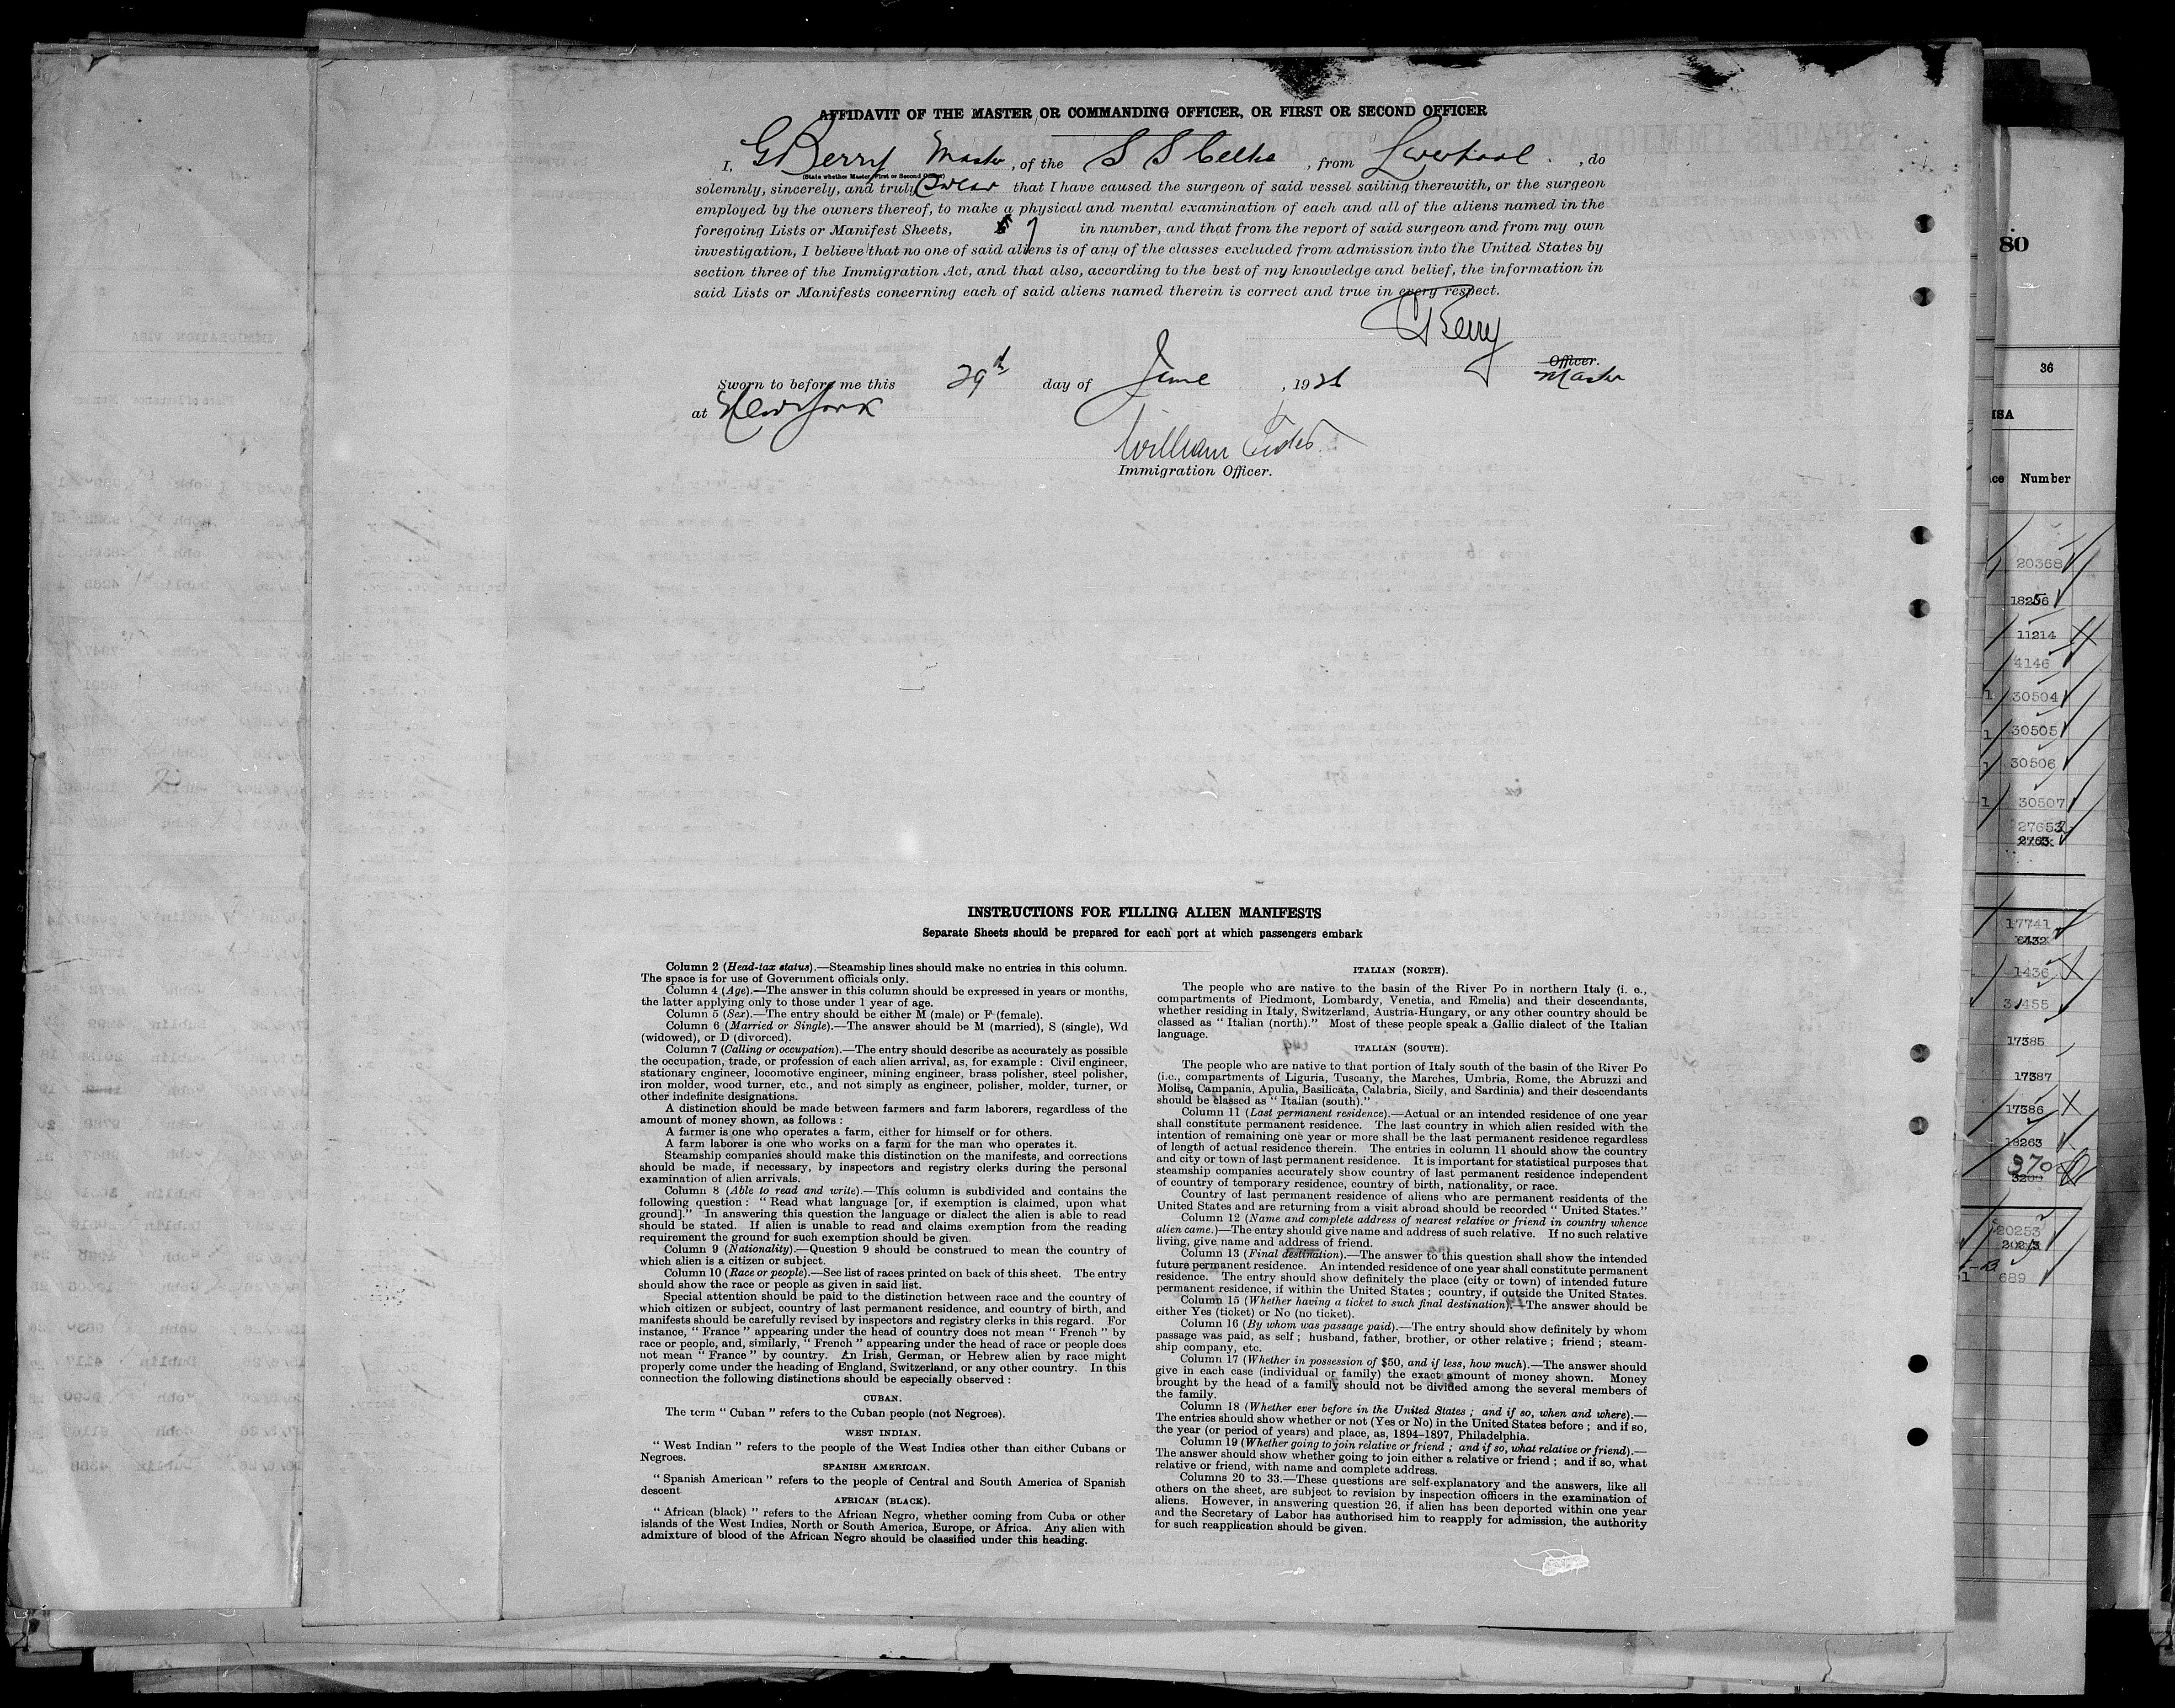 AFFIDAVIT OF THE MASTER OR COMMANDING OFFICER, OR FIRST OR SECOND OFFICER
I, G Berry Master, of the S S Celtic, from Liverpool, do
(State whether Master, First or Second Officer)
solemnly, sincerely, and truly swear that I have caused the surgeon of said vessel sailing therewith, or the surgeon
employed by the owners thereof, to make a physical and mental examination of each and all of the aliens named in the
foregoing Lists or Manifest Sheets, 7 in number, and that from the report of said surgeon and from my own
investigation, I believe that no one of said aliens is of any of the classes excluded from admission into the United States by
section three of the Immigration Act, and that also, according to the best of my knowledge and belief, the information in
said Lists or Manifests concerning each of said aliens named therein is correct and true in every respect.
G Berry
Officer.
Master
Sworn to before me this 29th day of June, 1926
at New York
William
Immigration Officer.
INSTRUCTIONS FOR FILLING ALIEN MANIFESTS
Separate Sheets should be prepared for each port at which passengers embark
Column 2 (Head-tax status).—Steamship lines should make no entries in this column.
The space is for use of Government officials only.
Column 4 (Age).—The answer in this column should be expressed in years or months,
the latter applying only to those under 1 year of age.
Column 5 (Sex).—The entry should be either M (male) or F (female).
Column 6 (Married or Single).—The answer should be M (married), S (single), Wd
(widowed), or D (divorced).
Column 7 (Calling or occupation).—The entry should describe as accurately as possible
the occupation, trade, or profession of each alien arrival, as, for example : Civil engineer,
stationary engineer, locomotive engineer, mining engineer, brass polisher, steel polisher,
iron molder, wood turner, etc., and not simply as engineer, polisher, molder, turner, or
other indefinite designations.
A distinction should be made between farmers and farm laborers, regardless of the
amount of money shown, as follows :
A farmer is one who operates a farm, either for himself or for others.
A farm laborer is one who works on a farm for the man who operates it.
Steamship companies should make this distinction on the manifests, and corrections
should be made, if necessary, by inspectors and registry clerks during the personal
examination of alien arrivals.
Column 8 (Able to read and write).—This column is subdivided and contains the
following question : “ Read what language [or, if exemption is claimed, upon what
ground].” In answering this question the language or dialect the alien is able to read
should be stated. If alien is unable to read and claims exemption from the reading
requirement the ground for such exemption should be given.
Column 9 (Nationality).—Question 9 should be construed to mean the country of
which alien is a citizen or subject.
Column 10 (Race or people).—See list of races printed on back of this sheet. The entry
should show the race or people as given in said list.
Special attention should be paid to the distinction between race and the country of
which citizen or subject, country of last permanent residence, and country of birth, and
manifests should be carefully revised by inspectors and registry clerks in this regard. For
instance, “ France ” appearing under the head of country does not mean “ French ” by
race or people, and, similarly, “ French ” appearing under the head of race or people does
not mean “ France ” by country. An Irish, German, or Hebrew alien by race might
properly come under the heading of England, Switzerland, or any other country. In this
connection the following distinctions should be especially observed :
CUBAN.
The term “ Cuban ” refers to the Cuban people (not Negroes).
WEST INDIAN.
“ West Indian ” refers to the people of the West Indies other than either Cubans or
Negroes.
SPANISH AMERICAN.
“ Spanish American ” refers to the people of Central and South America of Spanish
descent
AFRICAN (BLACK).
“ African (black) ” refers to the African Negro, whether coming from Cuba or other
islands of the West Indies, North or South America, Europe, or Africa. Any alien with
admixture of blood of the African Negro should be classified under this heading.
ITALIAN (NORTH).
The people who are native to the basin of the River Po in northern Italy (i. e.,
compartments of Piedmont, Lombardy, Venetia, and Emelia) and their descendants,
whether residing in Italy, Switzerland, Austria-Hungary, or any other country should be
classed as “ Italian (north).” Most of these people speak a Gallic dialect of the Italian
language.
ITALIAN (SOUTH).
The people who are native to that portion of Italy south of the basin of the River Po
(i.e., compartments of Liguria, Tuscany, the Marches, Umbria, Rome, the Abruzzi and
Molise, Campania, Apulia, Basilicata, Calabria, Sicily, and Sardinia) and their descendants
should be classed as “ Italian (south).”
Column 11 (Last permanent residence).—Actual or an intended residence of one year
shall constitute permanent residence. The last country in which alien resided with the
intention of remaining one year or more shall be the last permanent residence regardless
of length of actual residence therein. The entries in column 11 should show the country
and city or town of last permanent residence. It is important for statistical purposes that
steamship companies accurately show country of last permanent residence independent
of country of temporary residence, country of birth, nationality, or race.
Country of last permanent residence of aliens who are permanent residents of the
United States and are returning from a visit abroad should be recorded “ United States.”
Column 12 (Name and complete address of nearest relative or friend in country whence
alien came.)—The entry should give name and address of such relative. If no such relative
living, give name and address of friend.
Column 13 (Final destination).—The answer to this question shall show the intended
future permanent residence. An intended residence of one year shall constitute permanent
residence. The entry should show definitely the place (city or town) of intended future
permanent residence, if within the United States ; country, if outside the United States.
Column 15 (Whether having a ticket to such final destination).—The answer should be
either Yes (ticket) or No (no ticket).
Column 16 (By whom was passage paid).—The entry should show definitely by whom
passage was paid, as self ; husband, father, brother, or other relative ; friend ; steam-
ship company, etc.
Column 17 (Whether in possession of $50, and if less, how much).—The answer should
give in each case (individual or family) the exact amount of money shown. Money
brought by the head of a family should not be divided among the several members of
the family.
Column 18 (Whether ever before in the United States ; and if so, when and where).—
The entries should show whether or not (Yes or No) in the United States before ; and if so,
the year (or period of years) and place, as, 1894–1897, Philadelphia.
Column 19 (Whether going to join relative or friend ; and if so, what relative or friend).—
The answer should show whether going to join either a relative or friend ; and if so, what
relative or friend, with name and complete address.
Columns 20 to 33.—These questions are self-explanatory and the answers, like all
others on the sheet, are subject to revision by inspection officers in the examination of
aliens. However, in answering question 26, if alien has been deported within one year
and the Secretary of Labor has authorised him to reapply for admission, the authority
for such reapplication should be given.
80
36
Number
20368
11214
4146
30504
30505
30506
30507
17741
1436
17385
17387
17386
18263
20253
689